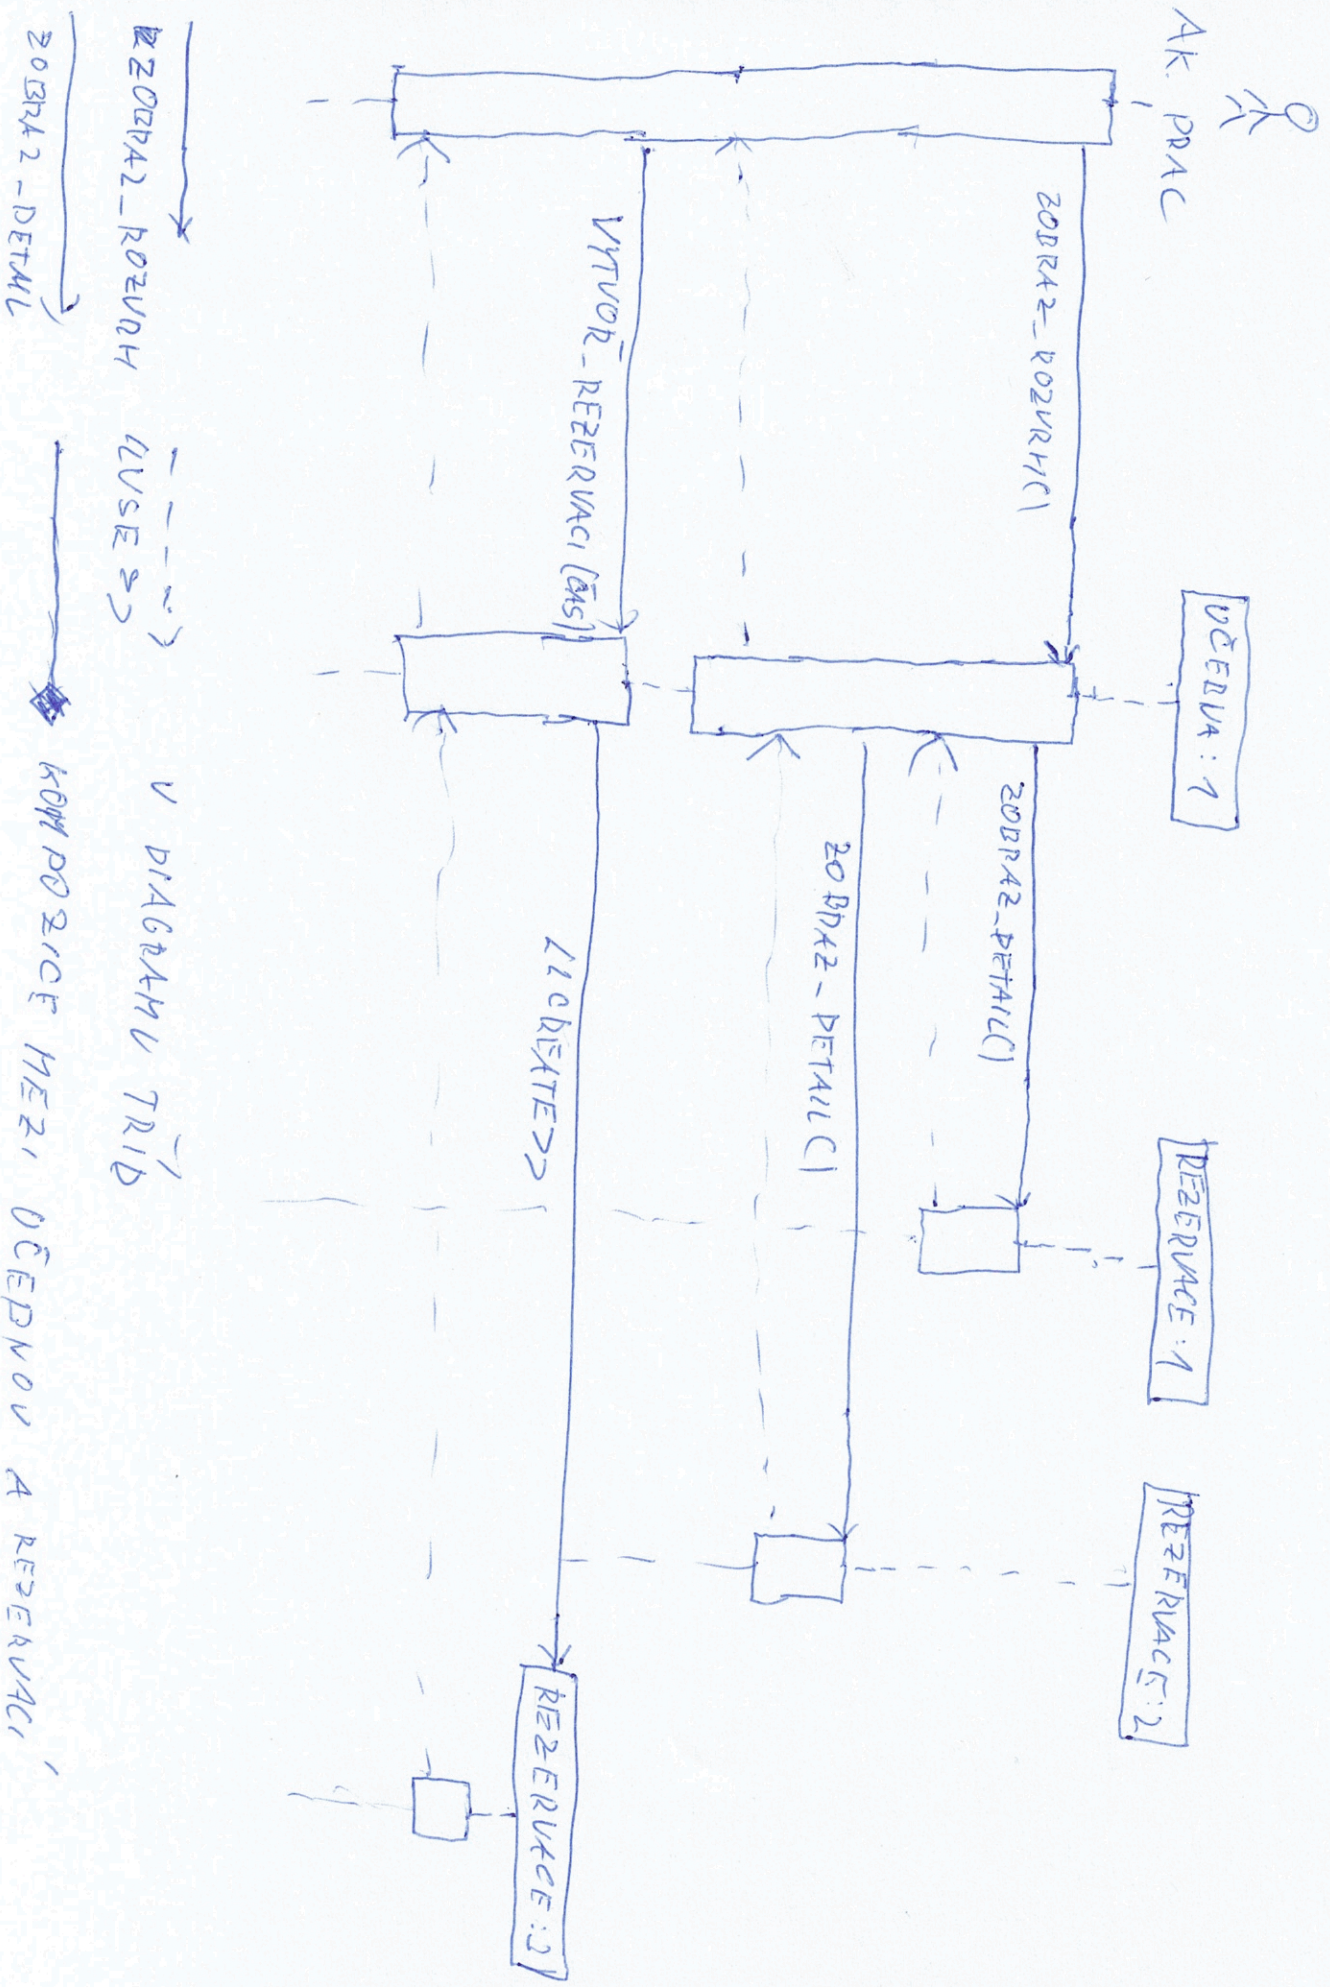 AK. PRAC
UČEBNA : 1
REZERVACE : 1
REZERVACE : 2
ZOBRAZ_ROZVRH()
ZOBRAZ_DETAIL()
ZOBRAZ_DETAIL()
VYTVOŘ_REZERVACI (ČAS)
<<CREATE>>
REZERVACE : 3
ZOBRAZ_ROZVRH <<USE>> V DIAGRAMU TŘÍD
ZOBRAZ_DETAIL KOMPOZICE MEZI UČEBNOU A REZERVACÍ